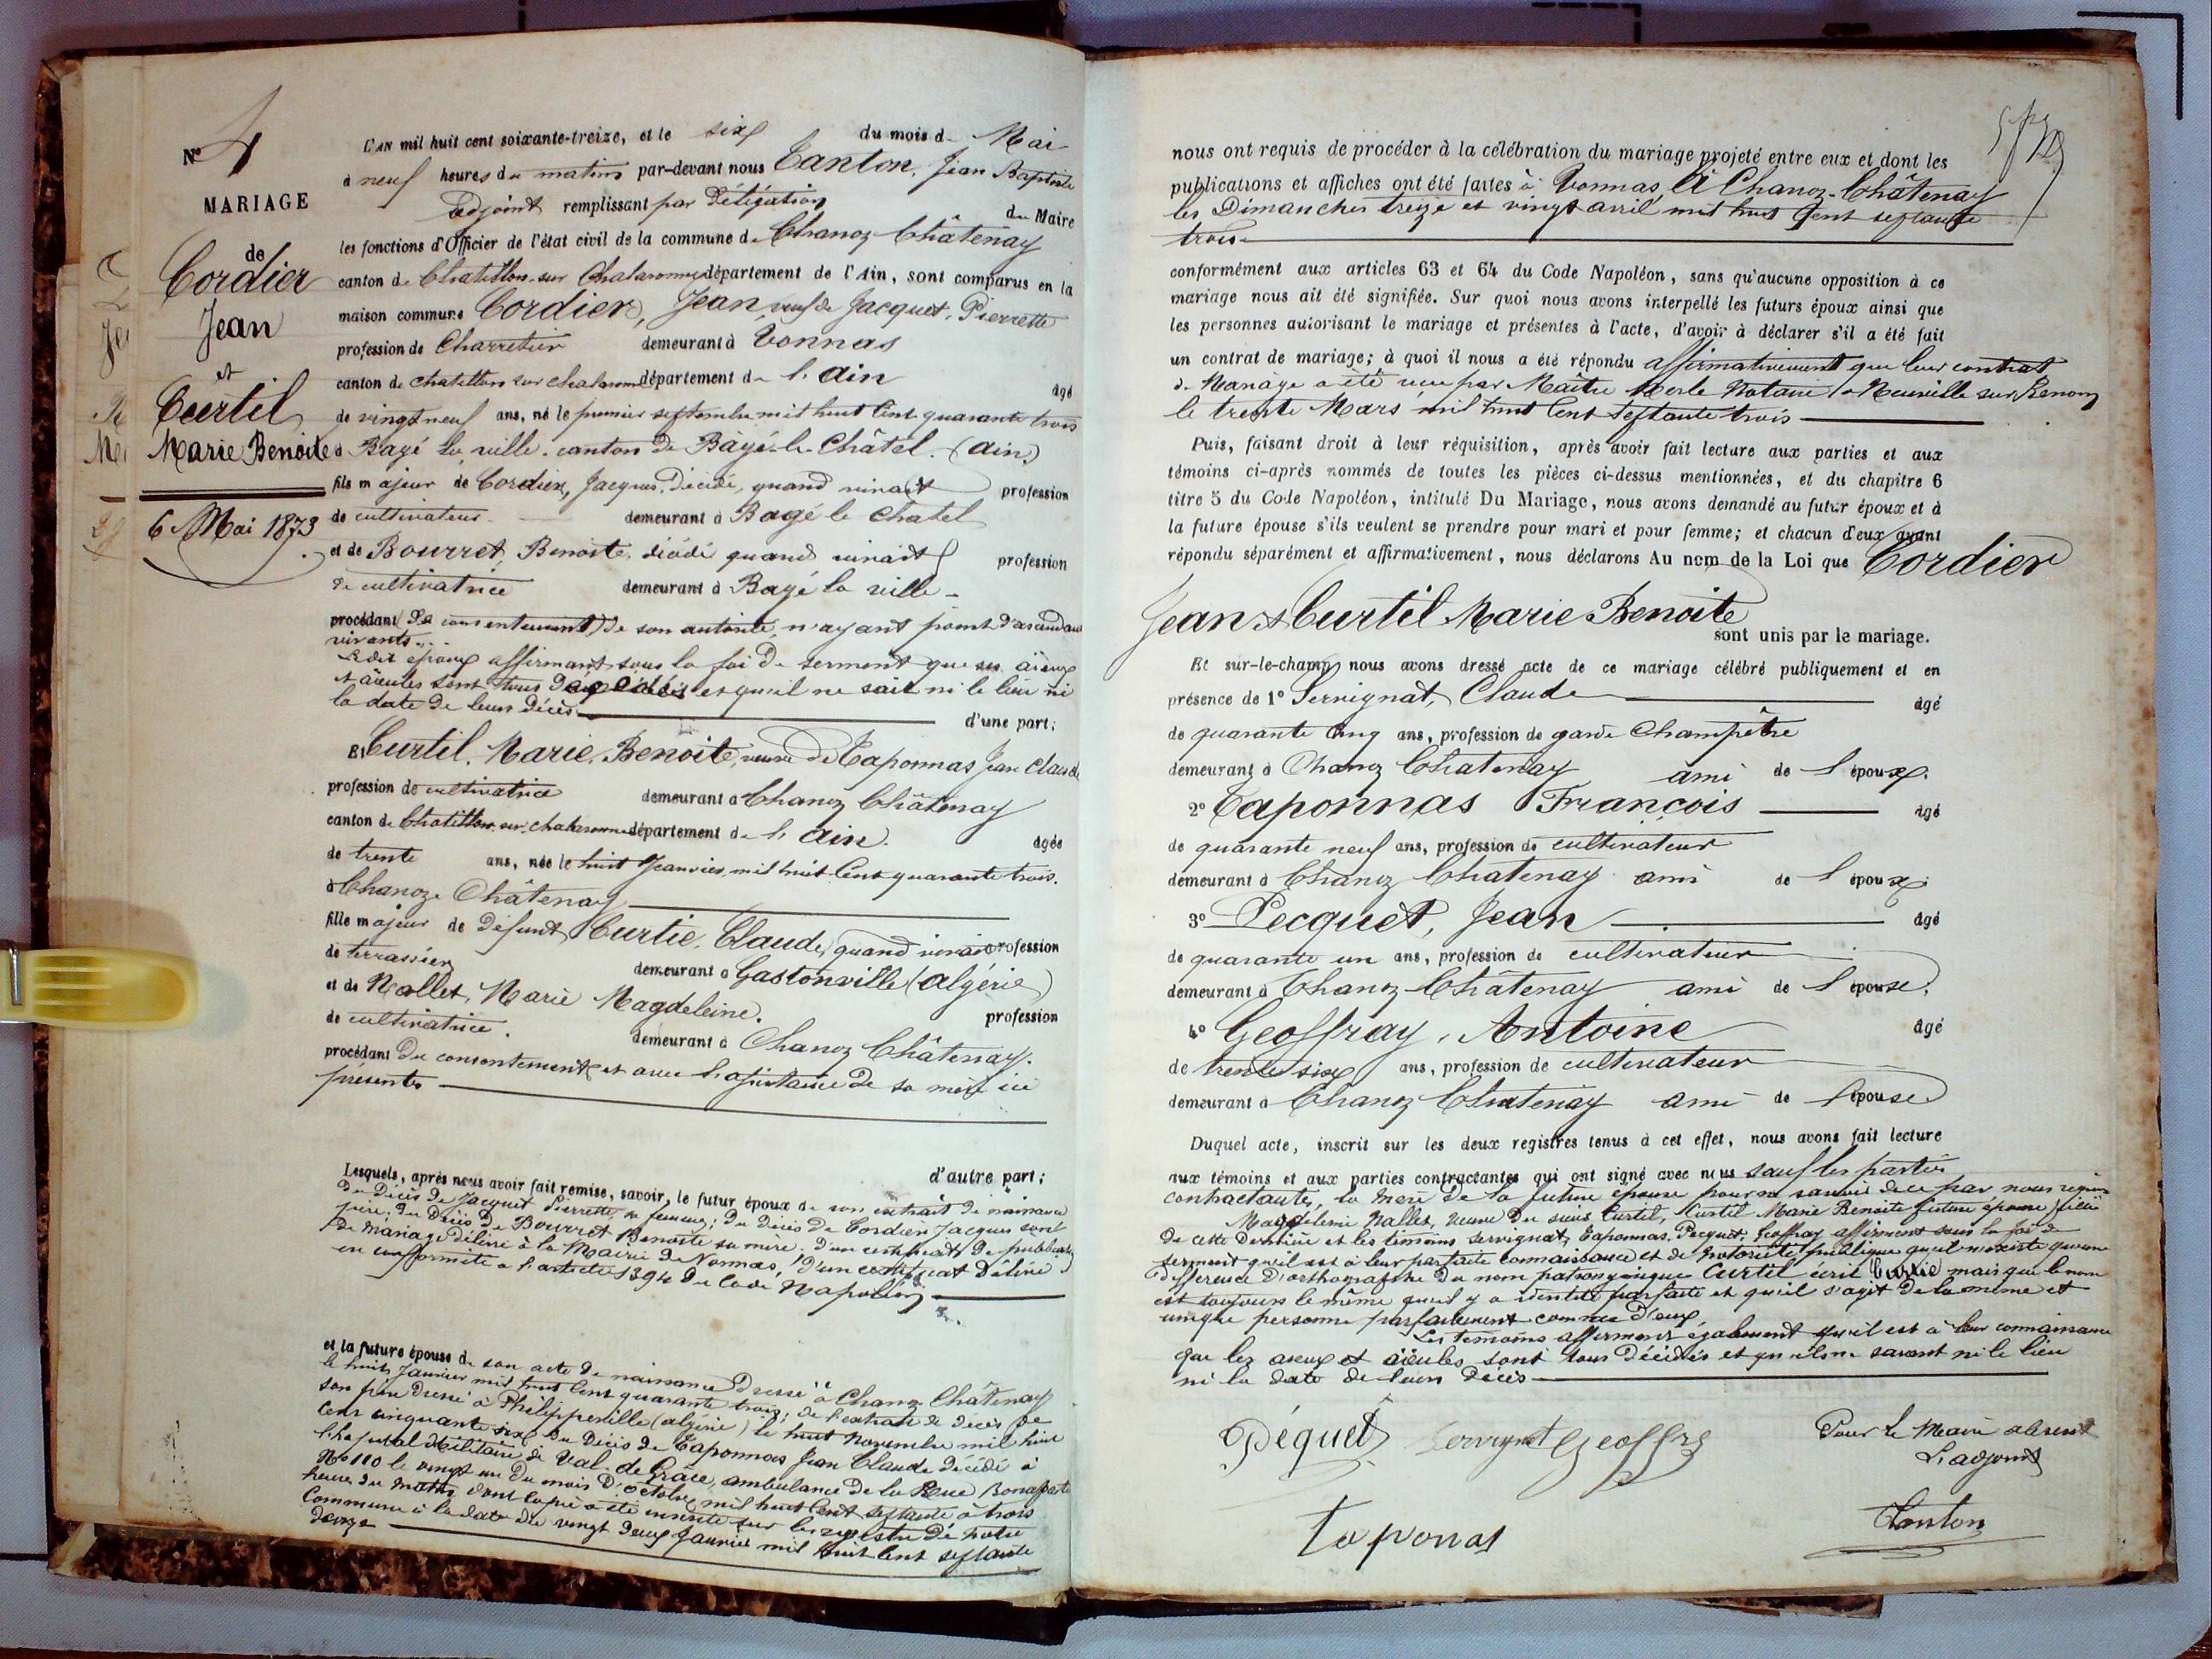 N° 4
MARIAGE
de
Cordier
Jean
et
Curtil
Marie Benoite
6 Mai 1873
L'AN mil huit cent soixante-treize, et le six du mois de Mai
à neuf heures du matin par-devant nous Canton, Jean Baptiste
adjoint remplissant par délégation du Maire
les fonctions d'Officier de l'état civil de la commune de Chanoz-Châtenay
canton de Chatillon-sur Chalaronne département de l'Ain, sont comparus en la
maison commune Cordier, Jean, veuf de Jacquet, Pierrette
profession de Charretier demeurant à Vonnas
canton de chatillon sur chalaronne département de l'Ain âgé
de vingt neuf ans, né le premier septembre mil huit cent quarante trois
à Bagé la ville canton de Bâgé-le-Châtel (Ain)
fils majeur de Cordier, Jacques, décédé, quand vivait profession
de cultivateur demeurant à Bagé le chatel
et de Bourret, Benoite, décédé quand vivait profession
de cultivatrice demeurant à Bagé la ville
procédant de son autorité, n'ayant point d'ascendants
vivants
Ledit époux affirmant sous la foi de serment que ses aïeux
et aïeules sont tous décédés et qu'il ne sait ni le lieu ni
la date de leurs décès d'une part;
Et Curtil, Marie, Benoite, veuve de Taponnas Jean Claude
profession de cultivatrice demeurant à Chanoz Châtenay
canton de Chatillon sur chalaronne département de l'Ain. âgée
de trente ans, née le huit Janvier mil huit cent quarante trois.
à Chanoz-Châtenay
fille majeur de défunt Curtie, Claude, quand vivait profession
de terrassier demeurant à Gastonville (algérie)
et de Nallet, Marie Magdeleine. profession
de cultivatrice. demeurant à Chanoz Châtenay.
procédant du consentement et avec l'assistance de sa mère ici
présente
d'autre part;
Lesquels, après nous avoir fait remise, savoir, le futur époux de son extrait de naissance
du décès de Jacquet Pierrette, sa femme; du décès de Cordier Jacques son
père; du décès de Bourret Benoite sa mère; d'un certificat de publication
de mariage délivré à la Mairie de Vonnas, d'un certificat délivré
en conformité à l'article 1394 du Code Napoléon
et la future épouse de son acte de naissance dressé à Chanoz Châtenay
le huit Janvier mil huit cent quarante trois; de l'extrait de décès de
son père dressé à Philippeville (algérie) le huit novembre mil huit
cent cinquante six du décès de Taponnas Jean Claude décédé à
l'hôpital Militaire de Val-de-Grâce, ambulance de la Rue Bonaparte
No 110 le vingt un du mois d'octobre mil huit cent septante à trois
heures du matin dont copie a été inscrite sur les registre de notre
Commune à la date du vingt deux Janvier mil huit cent septante
douze
nous ont requis de procéder à la célébration du mariage projeté entre eux et dont les
publications et affiches ont été faites à Vonnas, & à Chanoz-Châtenay
les Dimanches treize et vingt avril mil huit Cent septante
trois
conformément aux articles 63 et 64 du Code Napoléon, sans qu'aucune opposition à ce
mariage nous ait été signifiée. Sur quoi nous avons interpellé les futurs époux ainsi que
les personnes autorisant le mariage et présentes à l'acte, d'avoir à déclarer s'il a été fait
un contrat de mariage; à quoi il nous a été répondu affirmativement que leur contrat
de Mariage a été reçu par Maitre Merle Notaire à Neuville sur Renom
le trente Mars mil huit cent septante trois
Puis, faisant droit à leur réquisition, après avoir fait lecture aux parties et aux
témoins ci-après nommés de toutes les pièces ci-dessus mentionnées, et du chapitre 6
titre 5 du Code Napoléon, intitulé Du Mariage, nous avons demandé au futur époux et à
la future épouse s'ils veulent se prendre pour mari et pour femme; et chacun d'eux ayant
répondu séparément et affirmativement, nous déclarons Au nom de la Loi que Cordier
Jean & Curtil Marie Benoite
sont unis par le mariage.
Et sur-le-champ nous avons dressé acte de ce mariage célébré publiquement et en
présence de 1° Servignat, Claude âgé
de quarante cinq ans, profession de garde Champêtre
demeurant à Chanoz Chatenay ami de l'époux.
2° Taponnas François âgé
de quarante neuf ans, profession de cultivateur
demeurant à Chanoz Chatenay ami de l'époux
3° Pecquet, Jean âgé
de quarante un ans, profession de cultivateur
demeurant à Chanoz Châtenay ami de l'épouse.
4° Geoffray, Antoine âgé
de trente six ans, profession de cultivateur
demeurant à Chanoz Chatenay ami de l'épouse
Duquel acte, inscrit sur les deux registres tenus à cet effet, nous avons fait lecture
aux témoins et aux parties contractantes qui ont signé avec nous sauf les parties
contractantes, la mère de la future épouse pour ne savoir de ce par nous requis
Magdeleine Nallet, veuve du sieur Curtil, Curtil Marie Benoite future épouse fille
de cette dernière et les témoins Servignat, Taponnas, Pecquet, Geoffray affirment sous la foi de
serment qu'il est à leur parfaite connaissance et de notoriété publique qu'il n'existe qu'une
différence d'orthographe du nom patronymique Curtil écrit Curtie mais que le nom
est toujours le même qu'il y a identité parfaite et qu'il s'agit de la même et
unique personne parfaitement connue d'eux
Les témoins affirment également qu'il est à leur connaissance
que les aïeux et aïeules sont tous décédés et qu'ils ne savent ni le lieu
ni la date de leurs décès
Péquet Servignat Geoffray
Pour le Maire absent
L'adjoint
Taponas
Canton